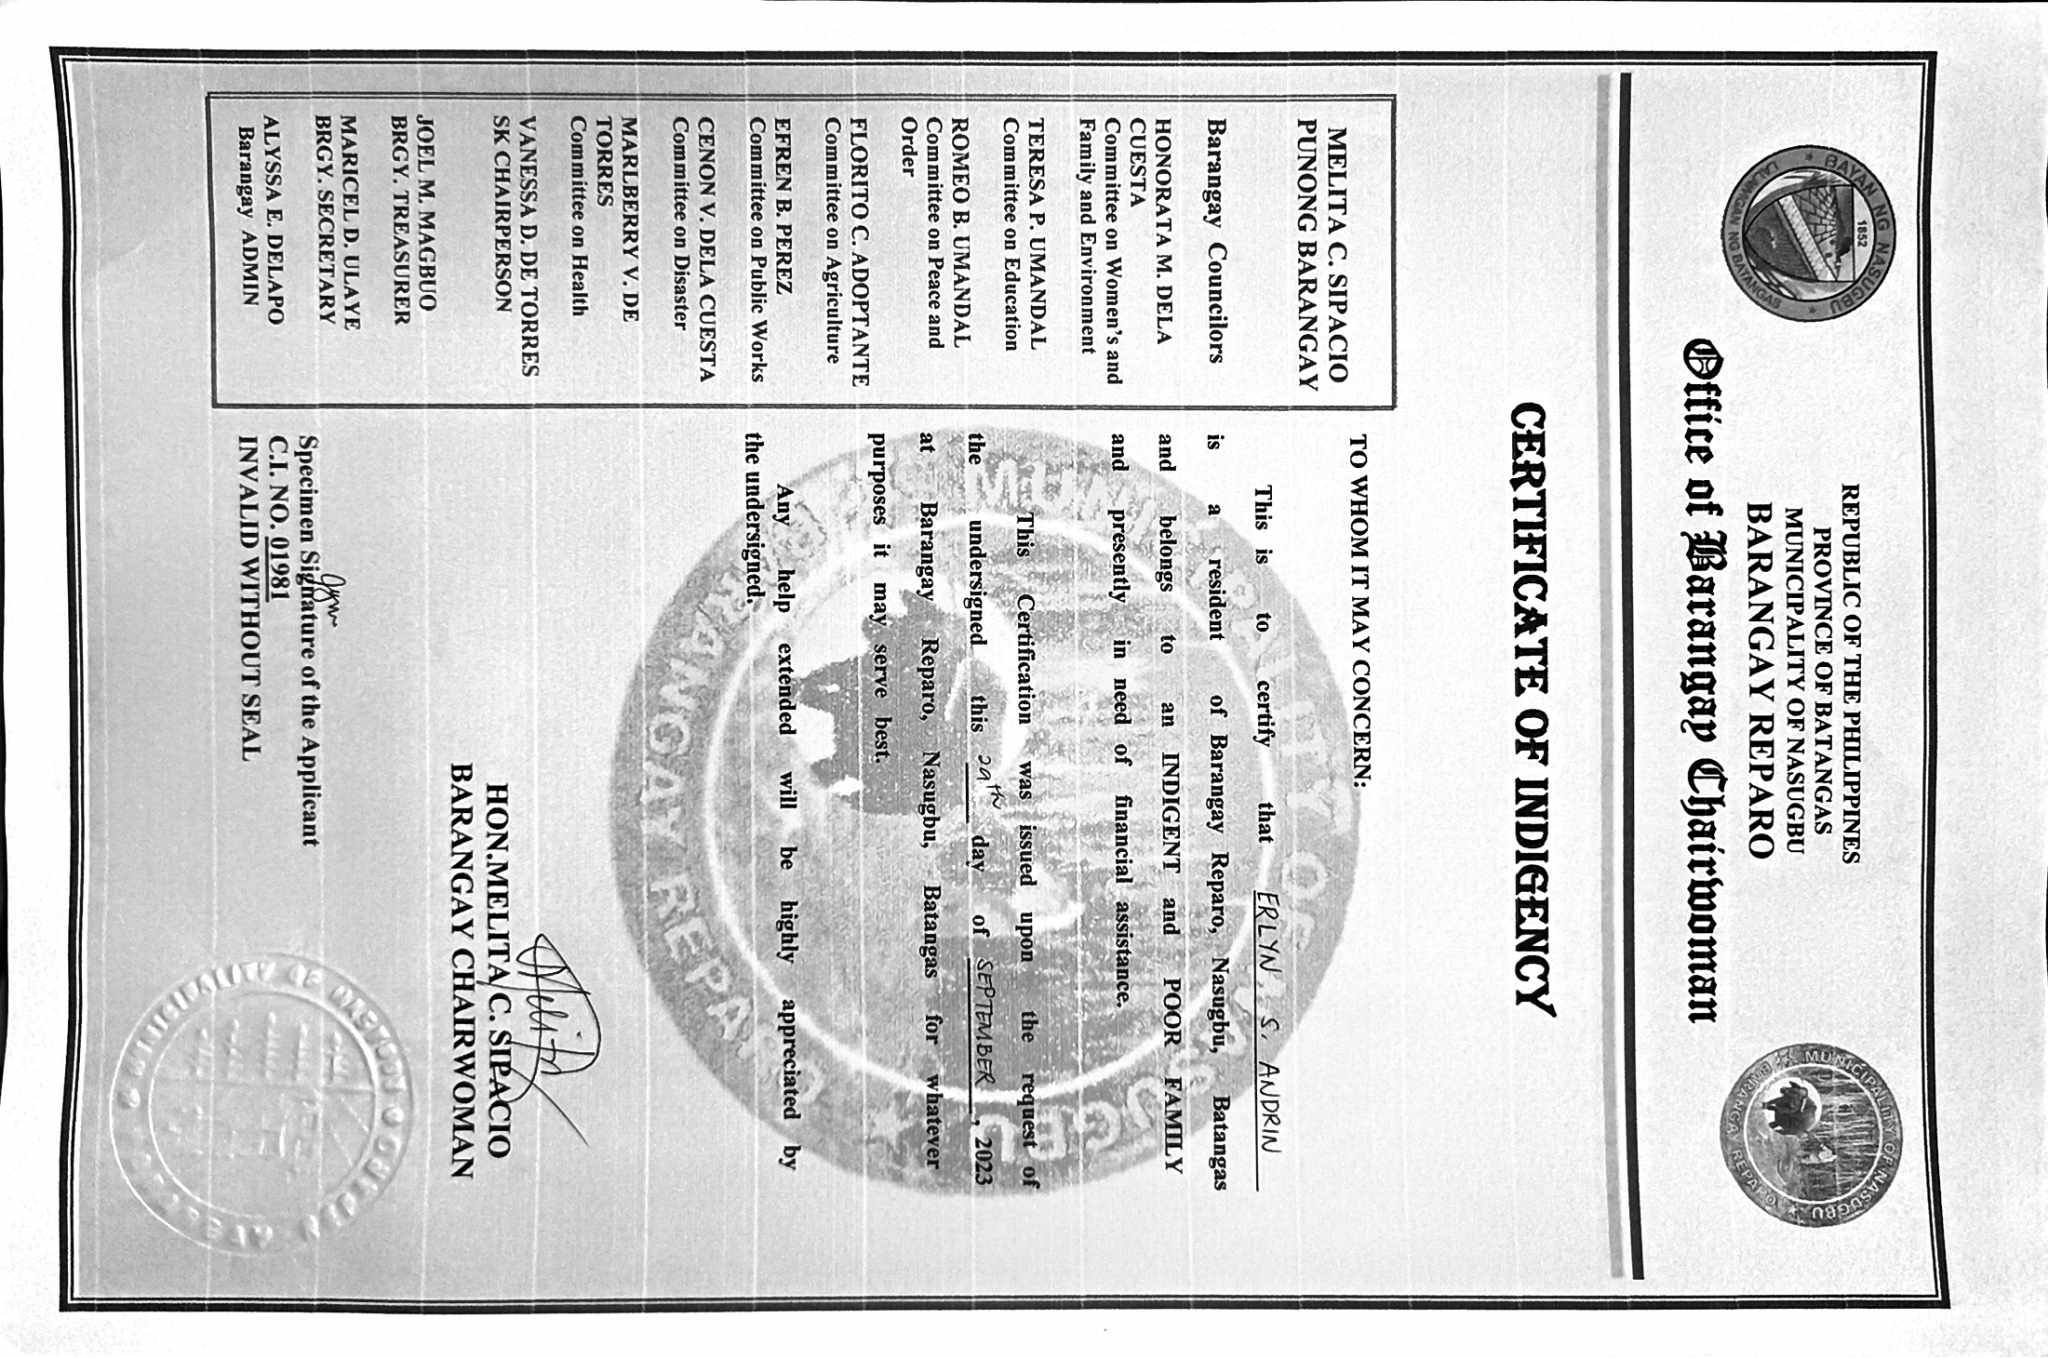 BAYAN NG NASUGBU
LALAWIGAN NG BATANGAS
1852
REPUBLIC OF THE PHILIPPINES
PROVINCE OF BATANGAS
MUNICIPALITY OF NASUGBU
BARANGAY REPARO
Office of Barangay Chairwoman
MUNICIPALITY OF NASUGBU
BARANGAY REPARO
CERTIFICATE OF INDIGENCY
MELITA C. SIPACIO
PUNONG BARANGAY
Barangay Councilors
HONORATA M. DELA
CUESTA
Committee on Women's and
Family and Environment
TERESA P. UMANDAL
Committee on Education
ROMEO B. UMANDAL
Committee on Peace and
Order
FLORITO C. ADOPTANTE
Committee on Agriculture
EFREN B. PEREZ
Committee on Public Works
CENON V. DELA CUESTA
Committee on Disaster
MARLBERRY V. DE
TORRES
Committee on Health
VANESSA D. DE TORRES
SK CHAIRPERSON
JOEL M. MAGBUO
BRGY. TREASURER
MARICEL D. ULAYE
BRGY. SECRETARY
ALYSSA E. DELAPO
Barangay ADMIN
TO WHOM IT MAY CONCERN:
This is to certify that ERLYN S. ANDRIN
is a resident of Barangay Reparo, Nasugbu, Batangas
and belongs to an INDIGENT and POOR FAMILY
and presently in need of financial assistance.
This Certification was issued upon the request of
the undersigned this 29th day of SEPTEMBER, 2023
at Barangay Reparo, Nasugbu, Batangas for whatever
purposes it may serve best.
Any help extended will be highly appreciated by
the undersigned.
MUNICIPALITY OF NASUGBU
BARANGAY REPARO
HON.MELITA C. SIPACIO
BARANGAY CHAIRWOMAN
Specimen Signature of the Applicant
C.I. NO. 01981
INVALID WITHOUT SEAL
MUNICIPALITY OF NASUGBU